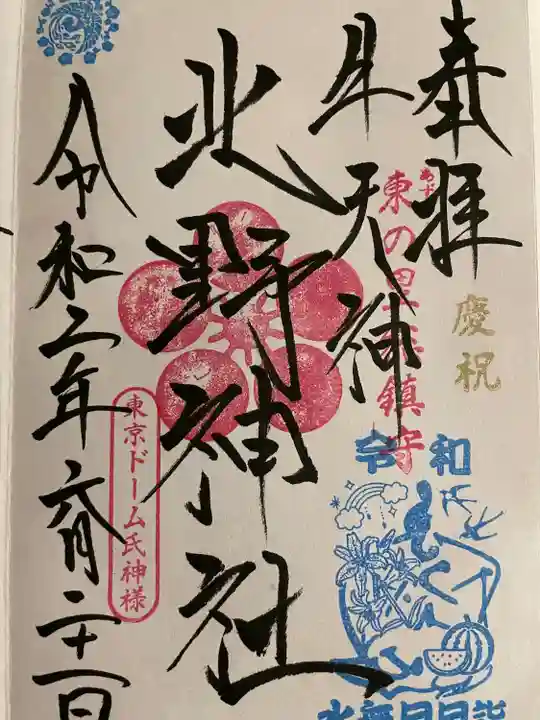 奉拝
慶祝
牛天神
東の里 鎮守
北野神社
令和
水無月
東京ドーム氏神様
令和二年六月二十一日